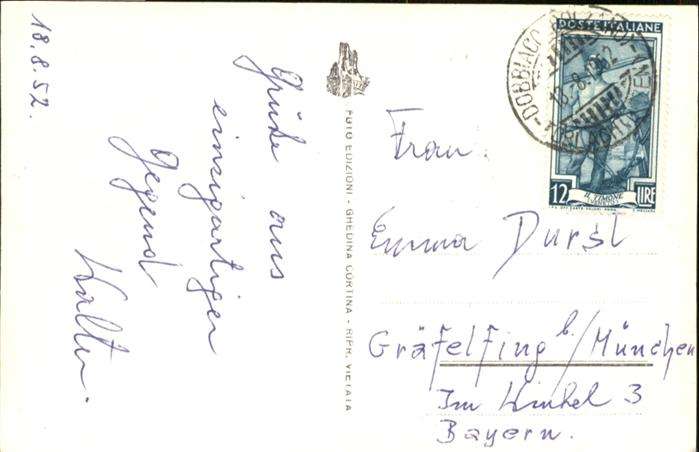 18.8.52.
Grüße aus
einzigartiger
Gegend
Walter.
FOTO EDIZIONI - GHEDINA CORTINA - RIPR. VIETATA
POSTE ITALIANE
DOBBIACO
18.8.1952
12 LIRE
IL TIMONE
Frau.
Emma Durst
Gräfelfing b./München
Im Winkel 3
Bayern.